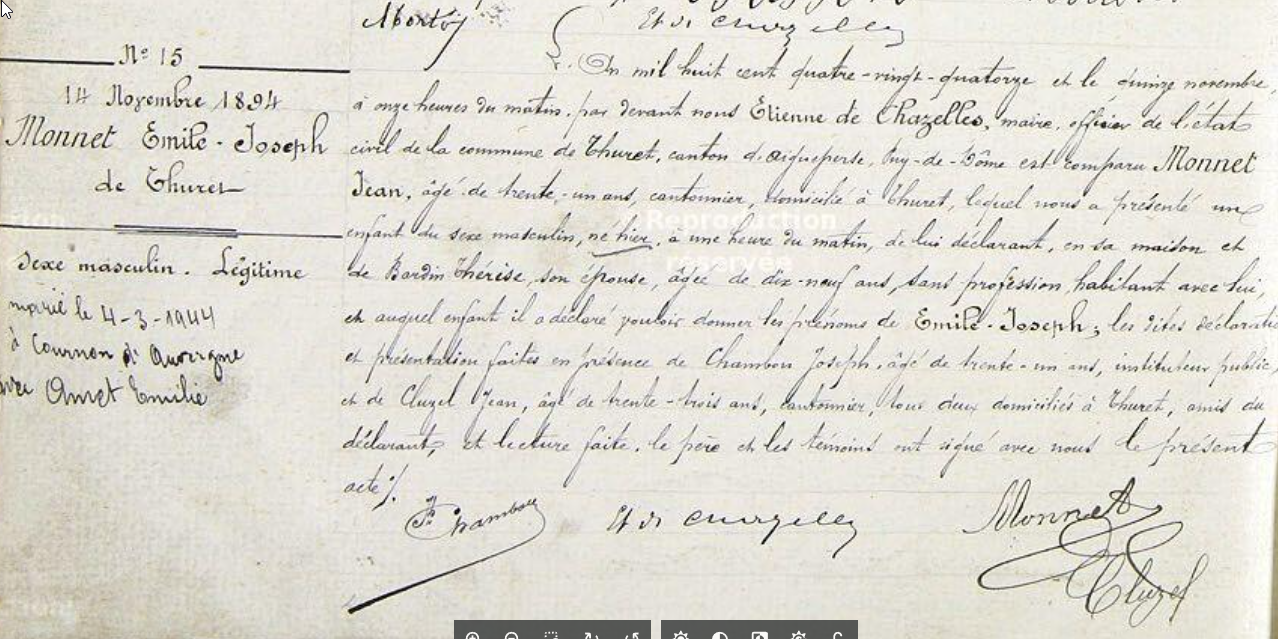 Et de Chazelles
Nº 15
14 Novembre 1894
Monnet Emile-Joseph
de Thuret
Sexe masculin. Légitime
marié le 4-3-1944
à Cournon d'Auvergne
avec Emilie
L'An mil huit cent quatre-vingt-quatorze et le quinze novembre,
à onze heures du matin, par devant nous Etienne de Chazelles, maire, officier de l'état
civil de la commune de Thuret, canton d'aigueperse, Puy-de-Dôme est comparu Monnet
Jean, âgé de trente-un ans, cantonnier, domicilié à Thuret, lequel nous a présenté un
enfant du sexe masculin, né hier, à une heure du matin, de lui déclarant, en sa maison et
de Bardin Thérèse, son épouse, âgée de dix-neuf ans, sans profession, habitant avec lui,
et auquel enfant il a déclaré vouloir donner les prénoms de Emile-Joseph; les dites déclaratio
et présentation faites en présence de Chambon Joseph, âgé de trente-un ans, instituteur public,
et de Cluzel Jean, âgé de trente-trois ans, cantonnier, tous deux domiciliés à Thuret, amis du
déclarant, et lecture faite, le père et les témoins ont signé avec nous le présent
acte./.
Jh Chambon
Et de Chazelles
Monnet
Cluzel
Reproduction
réservée